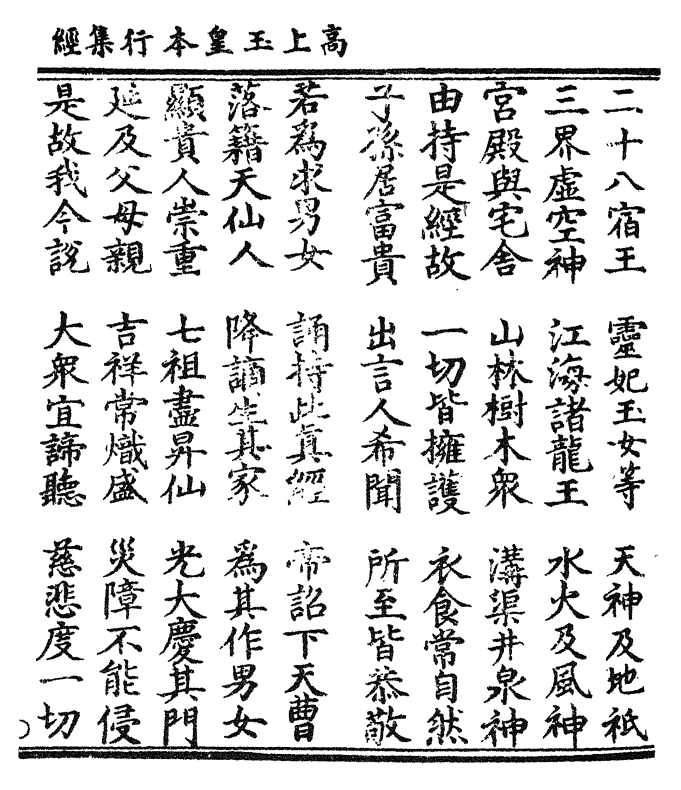 高上玉皇本行集經
二十八宿王 靈妃玉女等 天神及地祇
三界虛空神 江海諸龍王 水火及風神
宮殿與宅舍 山林樹木衆 溝渠井泉神
由持是經故 一切皆擁護 衣食常自然
子孫居富貴 出言人希聞 所至皆恭敬
若爲求男女 誦持此真經 帝詔下天曹
落籍天仙人 降謫生其家 爲其作男女
顯貴人崇重 七祖盡昇仙 光大慶其門
延及父母親 吉祥常熾盛 災障不能侵
是故我今說 大衆宜諦聽 慈悲度一切